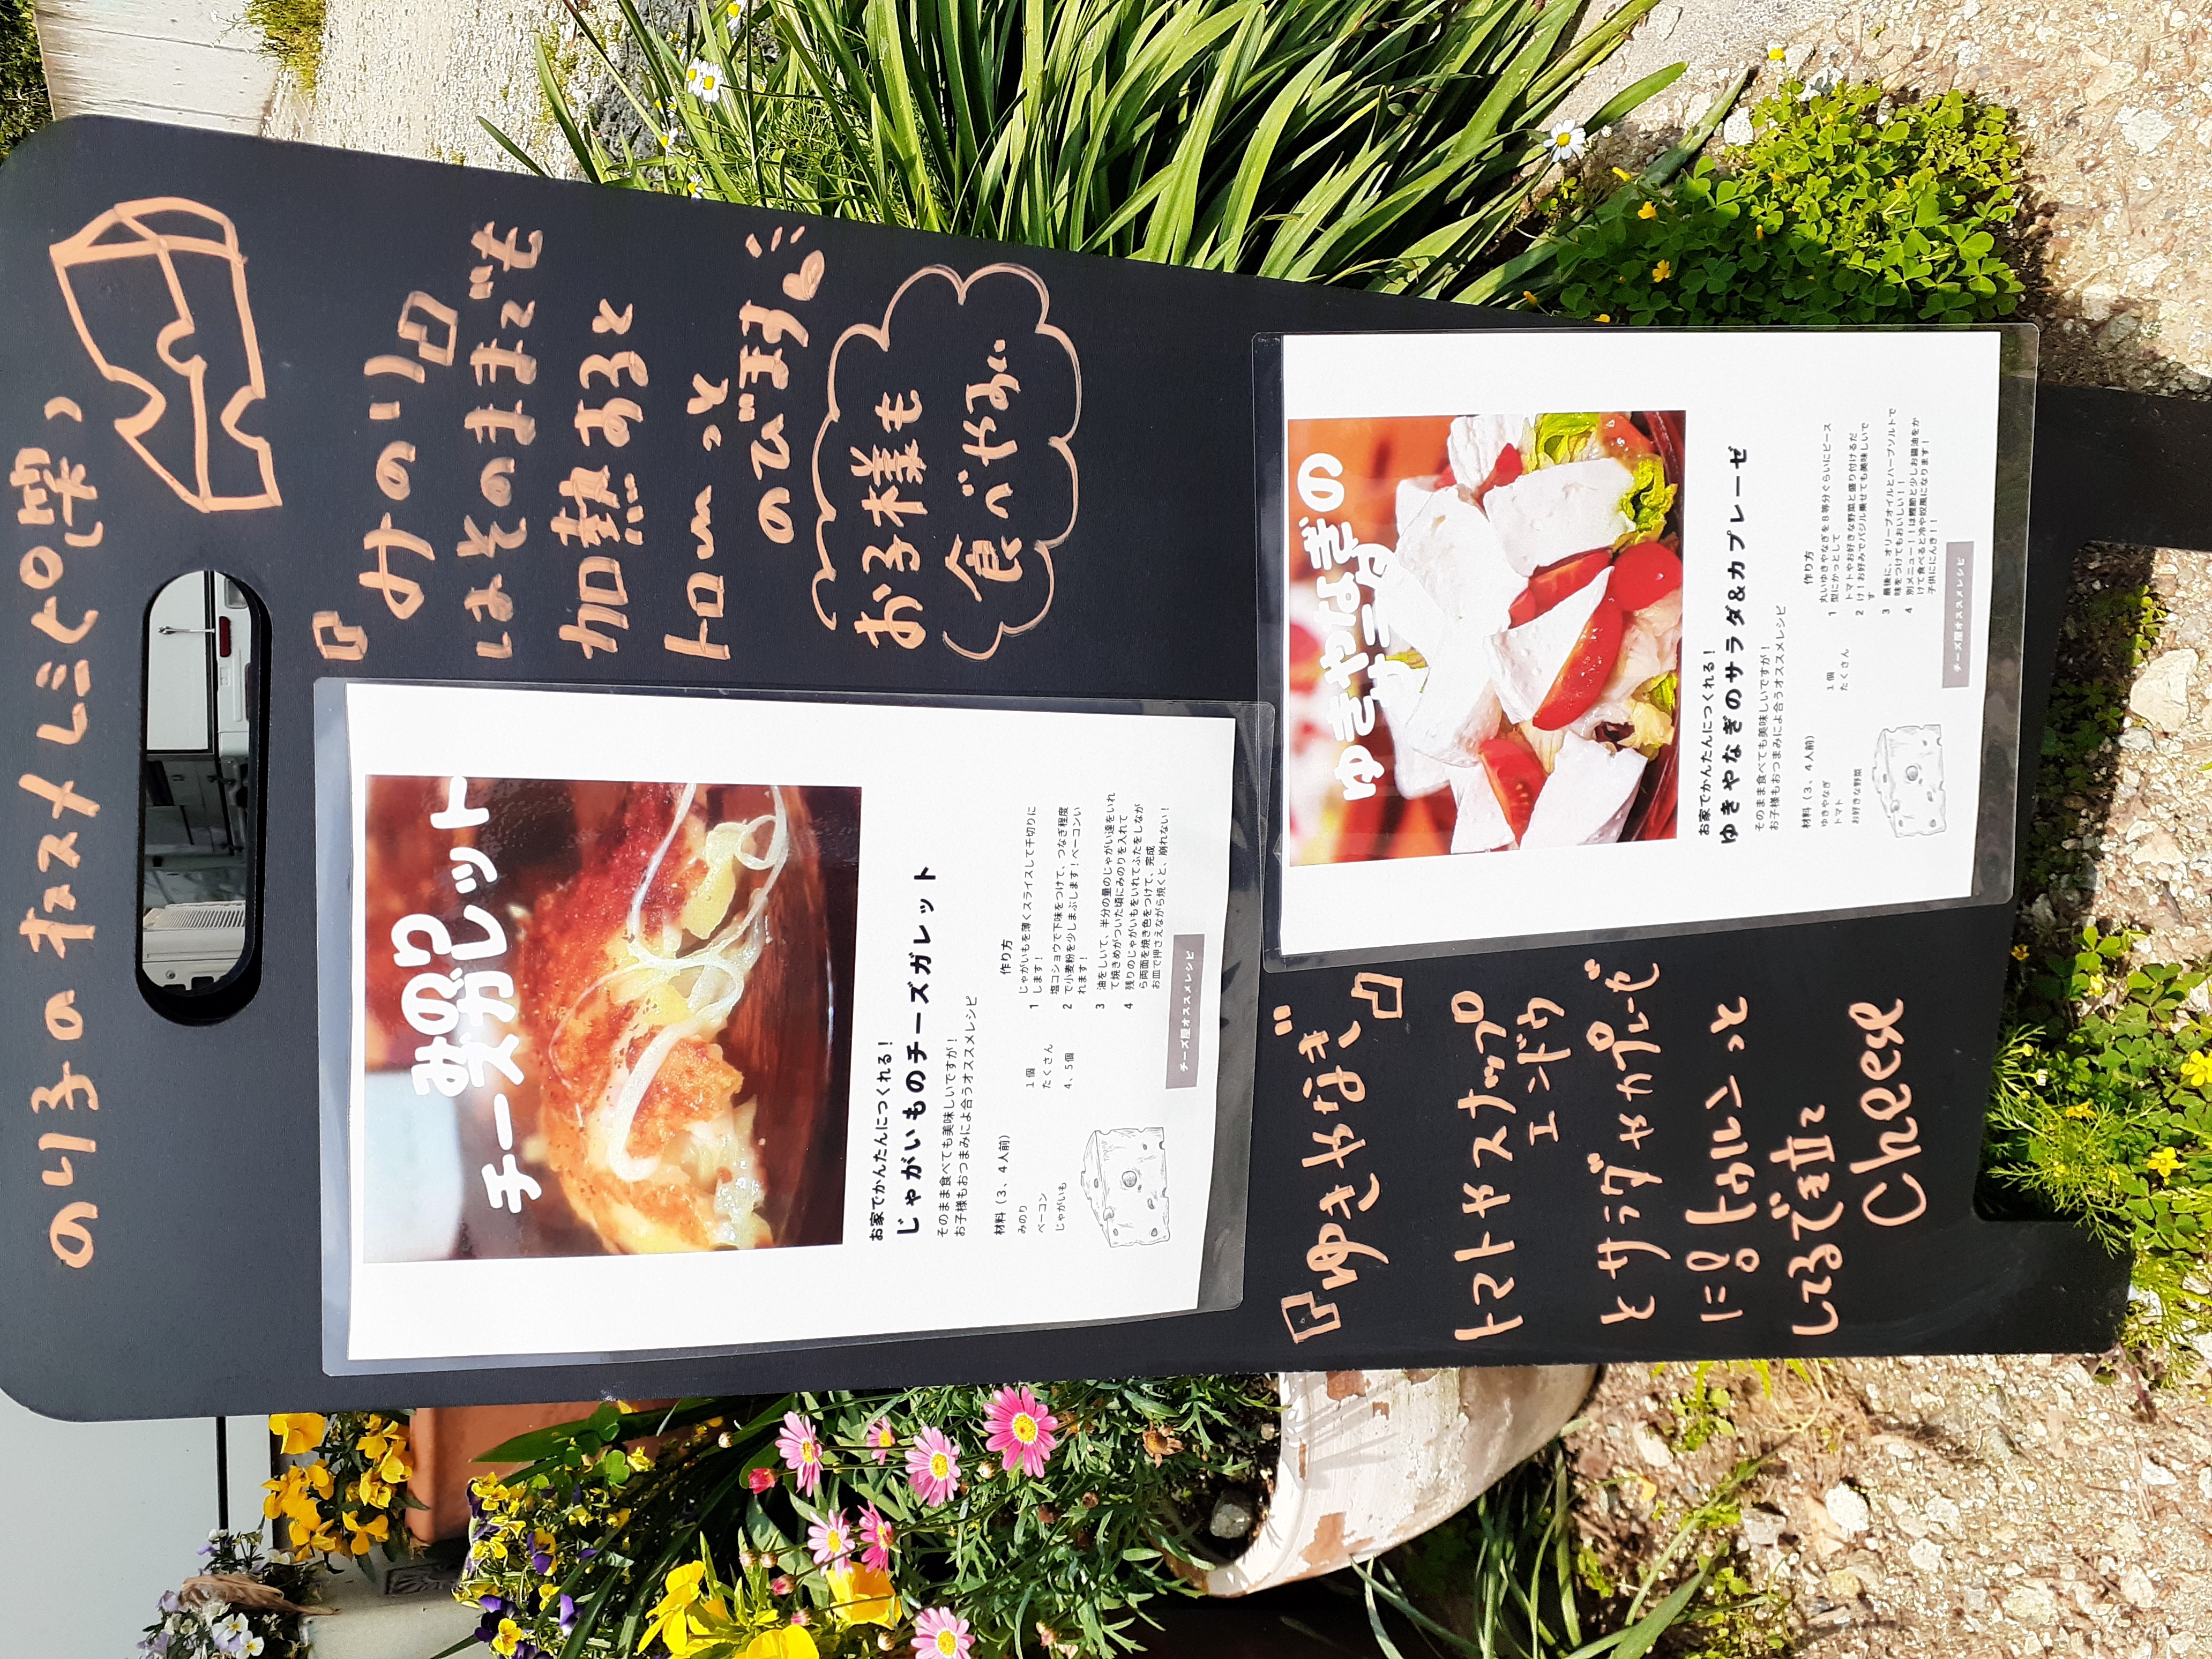 のり子のオススメレシピ(笑)
『みのり』
はそのままでも
加熱あると
トローっと
のびます
お子様も
食べやすい
みのり
チーズガレット
お家でかんたんにつくれる！
じゃがいものチーズガレット
そのまま食べても美味しいですが！
お子様もおつまみによ合うオススメレシピ
材料（3、4人前）
みのり 1個
ベーコン たくさん
じゃがいも 4、5個
作り方
1 じゃがいもを薄くスライスして千切りに
します！
2 塩コショウで下味をつけて、つなぎ程度
で小麦粉を少しまぶします！ベーコンい
れます！
3 油をしいて、半分の量のじゃがい達をいれ
て焼きめがついた頃にみのりを入れて
4 残りのじゃがいもをいれてふたをしなが
ら両面を焼き色をつけて、完成
お皿で押さえながら焼くと、崩れない！
チーズ屋オススメレシピ
ゆきやなぎの
サラダ
お家でかんたんにつくれる！
ゆきやなぎのサラダ&カプレーゼ
そのまま食べても美味しいですが！
お子様もおつまみによ合うオススメレシピ
材料（3、4人前）
ゆきやなぎ 1個
トマト たくさん
お好きな野菜
作り方
1 丸いゆきやなぎを8等分ぐらいにピース
型にかっとして
2 トマトやお好きな野菜と盛り付けるだ
け！お好みでバジル乗せても美味しいで
す
3 最後に、オリーブオイルとハーブソルトで
味をつけてもおいしい！！
4 別メニュー！！は鰹節と少しお醤油をか
けて食べると冷や奴風になります！
子供ににんき！！
チーズ屋オススメレシピ
『ゆきやなぎ』
トマトやスナップ
エンドウ
とサラダやカプレーゼ
に！！トゥルンっと
してるでき立て
Cheese